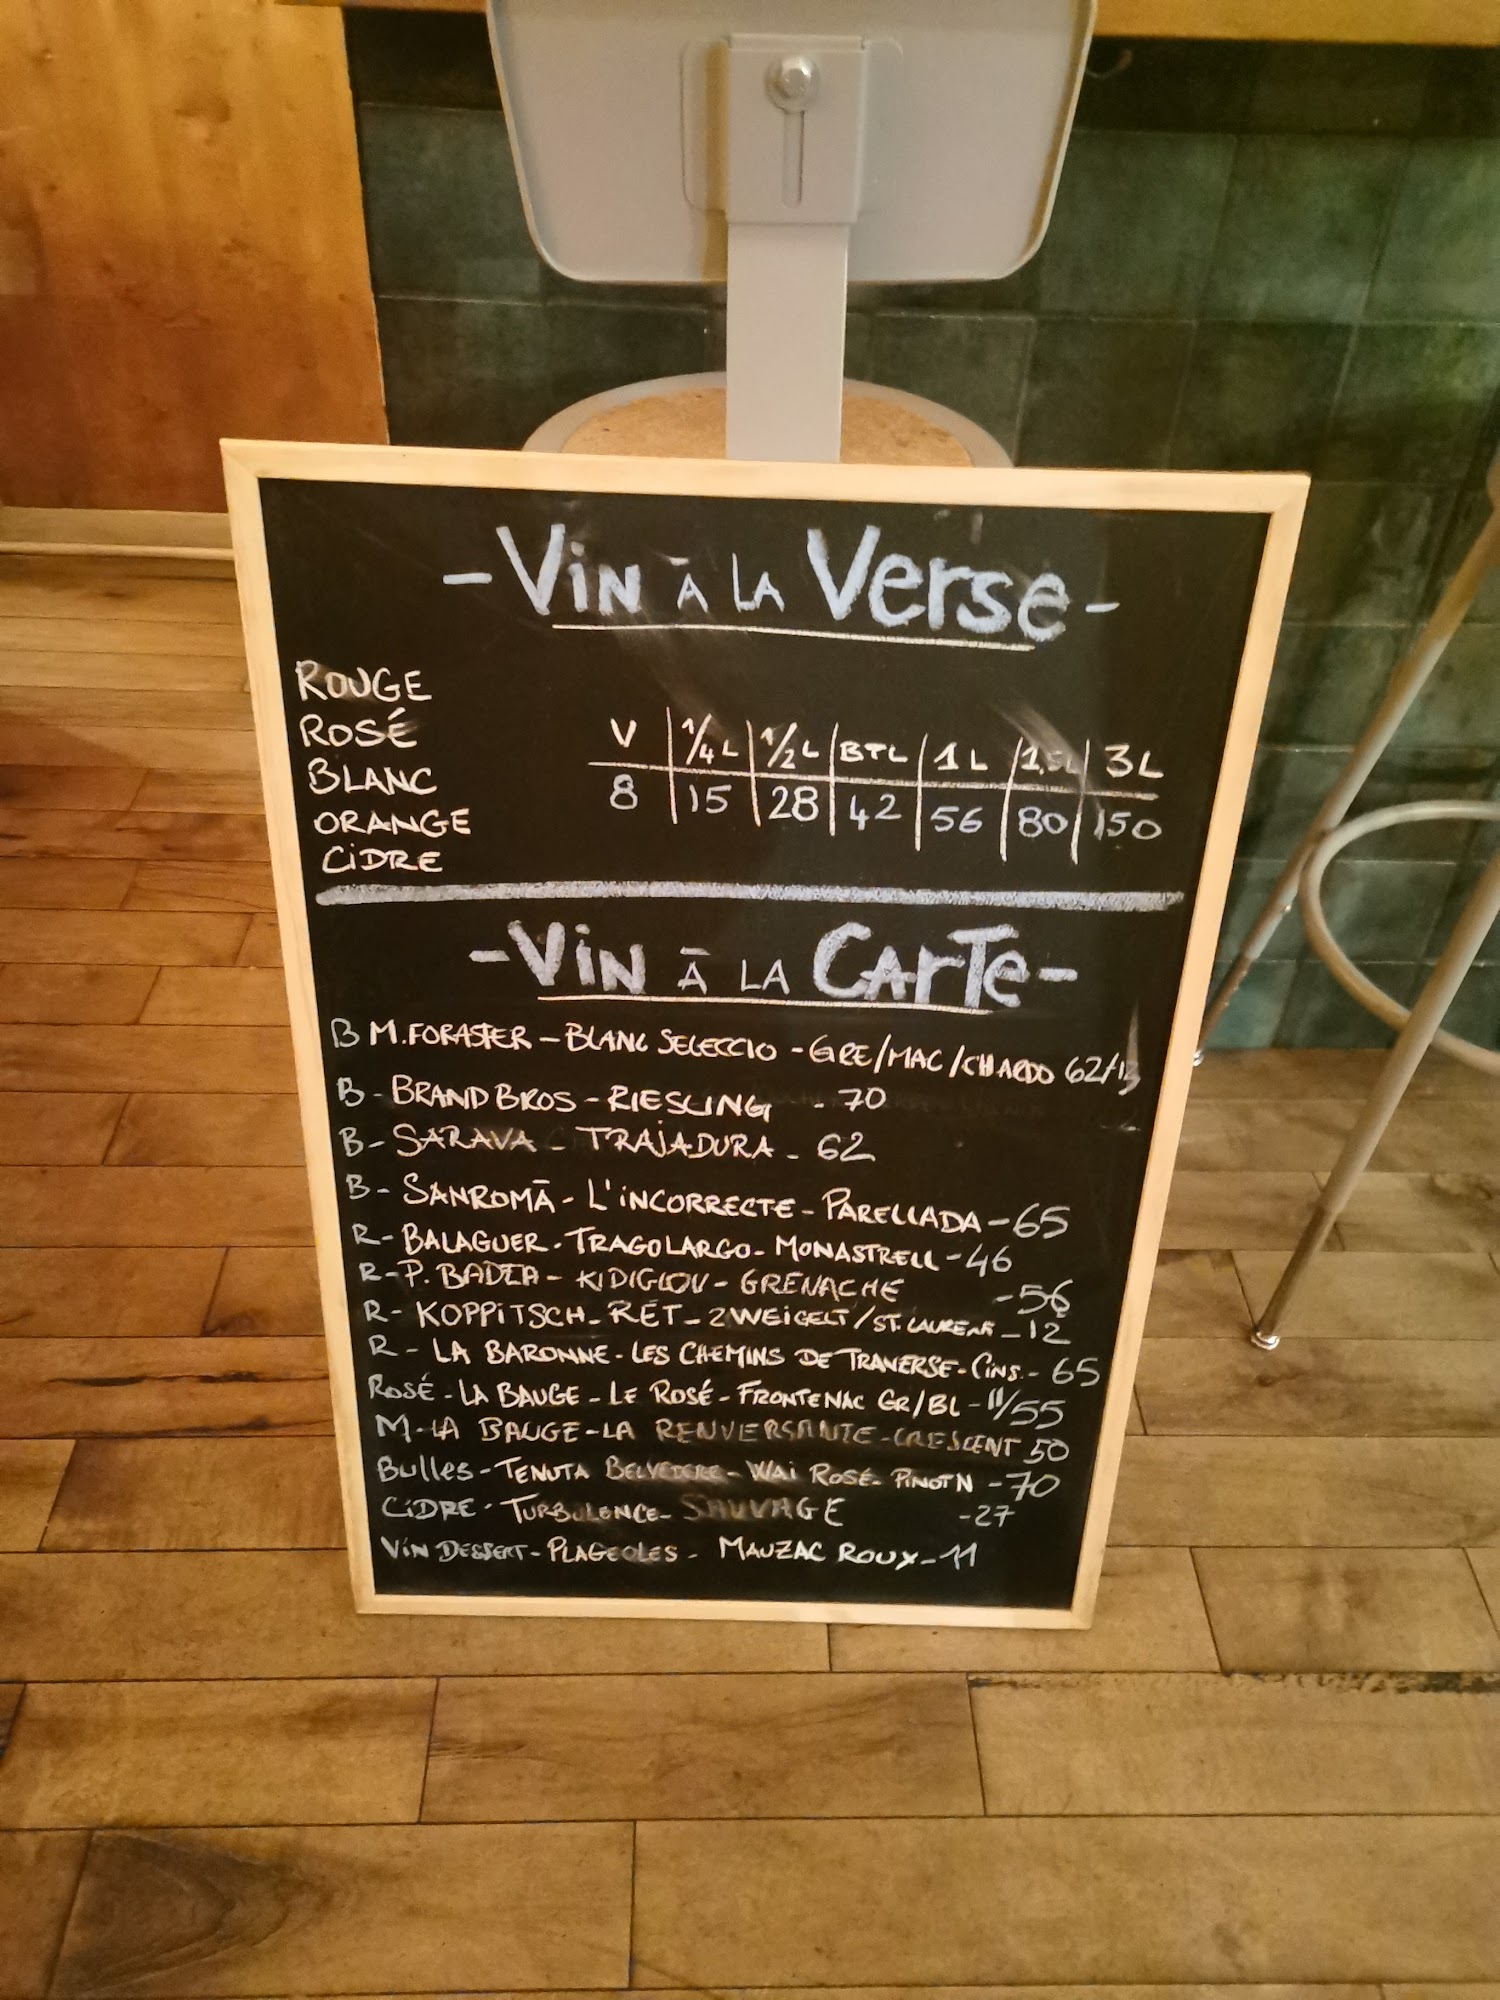 - Vin à la Verse -
ROUGE
ROSÉ
BLANC
ORANGE
CIDRE
V | 1/4 L | 1/2 L | BTL | 1 L | 1,5L | 3 L
8 | 15 | 28 | 42 | 56 | 80 | 150
- Vin à la Carte -
B M. FORASTER - BLANC SELECCIO - GRE/MAC/CHARDO 62/13
B - BRAND BROS - RIESLING - 70
B - SARAVA - TRAJADURA - 62
B - SANROMÀ - L'INCORRECTE - PARELLADA - 65
R - BALAGUER - TRAGOLARGO - MONASTRELL - 46
R - P. BADEA - KIDIGLOV - GRENACHE - 56
R - KOPPITSCH - RÉT - ZWEIGELT / ST. LAURENT - 12
R - LA BARONNE - LES CHEMINS DE TRAVERSE - CINS. - 65
ROSÉ - LA BAUGE - LE ROSÉ - FRONTENAC GR/BL - 11/55
M - LA BAUGE - LA RENVERSANTE - CRESCENT 50
Bulles - TENUTA BELVEDERE - WAI ROSÉ - PINOT N - 70
CIDRE - TURBULENCE - SAUVAGE - 27
VIN DESSERT - PLAGEOLES - MAUZAC ROUX - 11